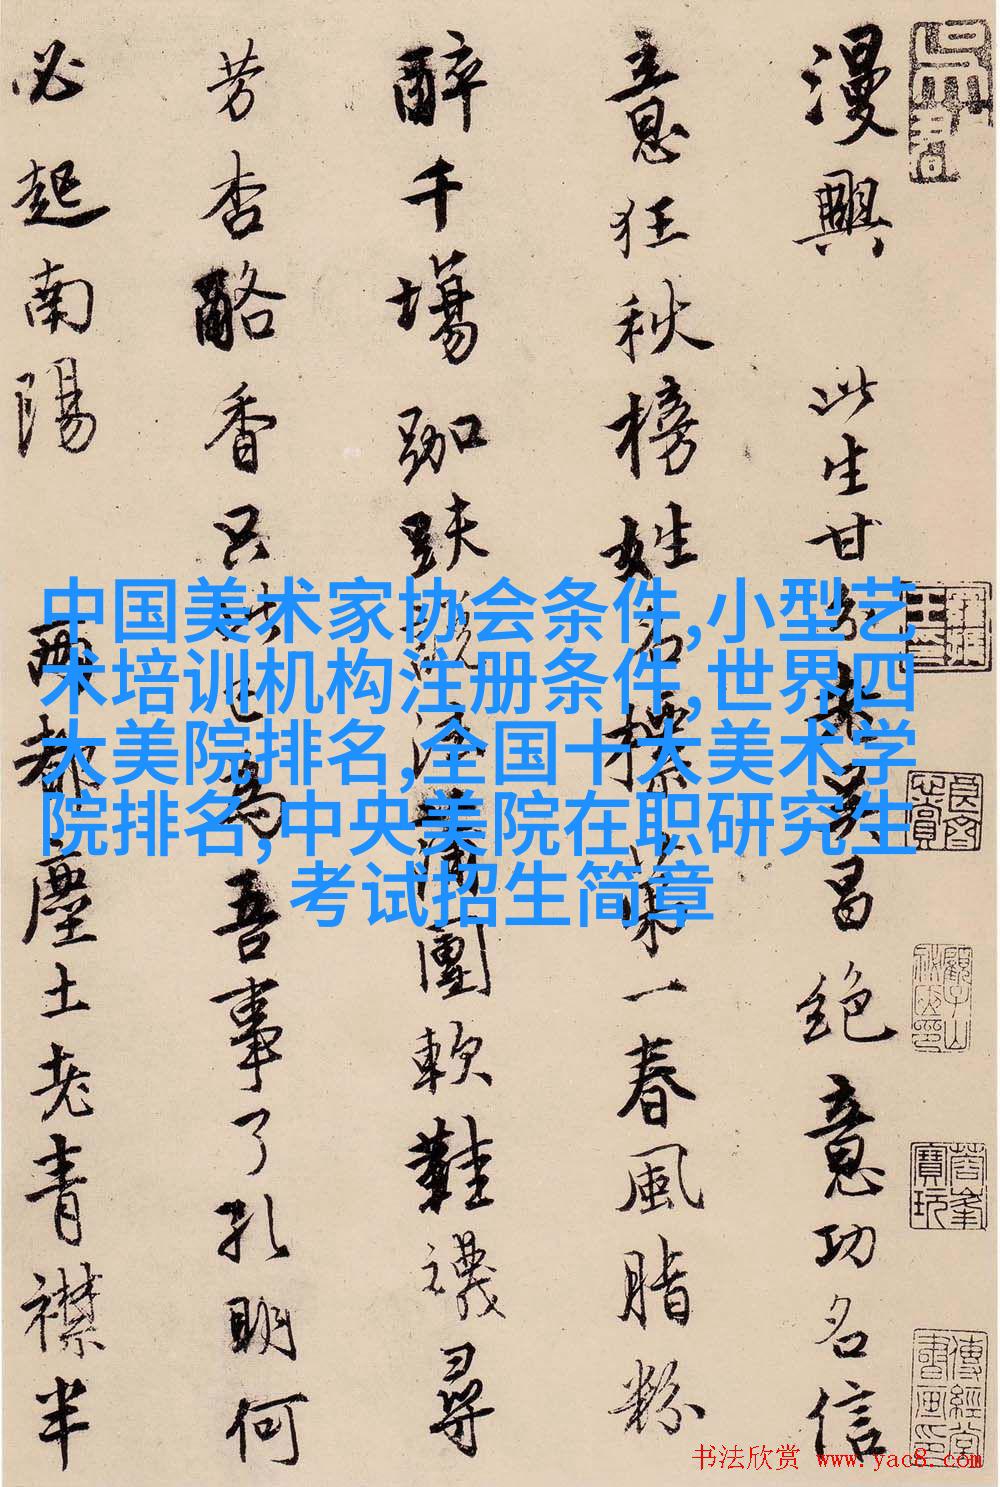 漫興 此生甘分老吴昌絶意功名信
意狂秋榜姓名標第一春風脂粉
醉千場跏趺説法蒲團軟鞋襪尋
芳杏酪香只此已為吾事了孔明何
必起南陽 兩都塵土老青襟半
中国美术家协会条件,小型艺
术培训机构注册条件,世界四
大美院排名,全国十大美术学
院排名,中央美院在职研究生
考试招生简章
书法欣赏 www.yac8.com